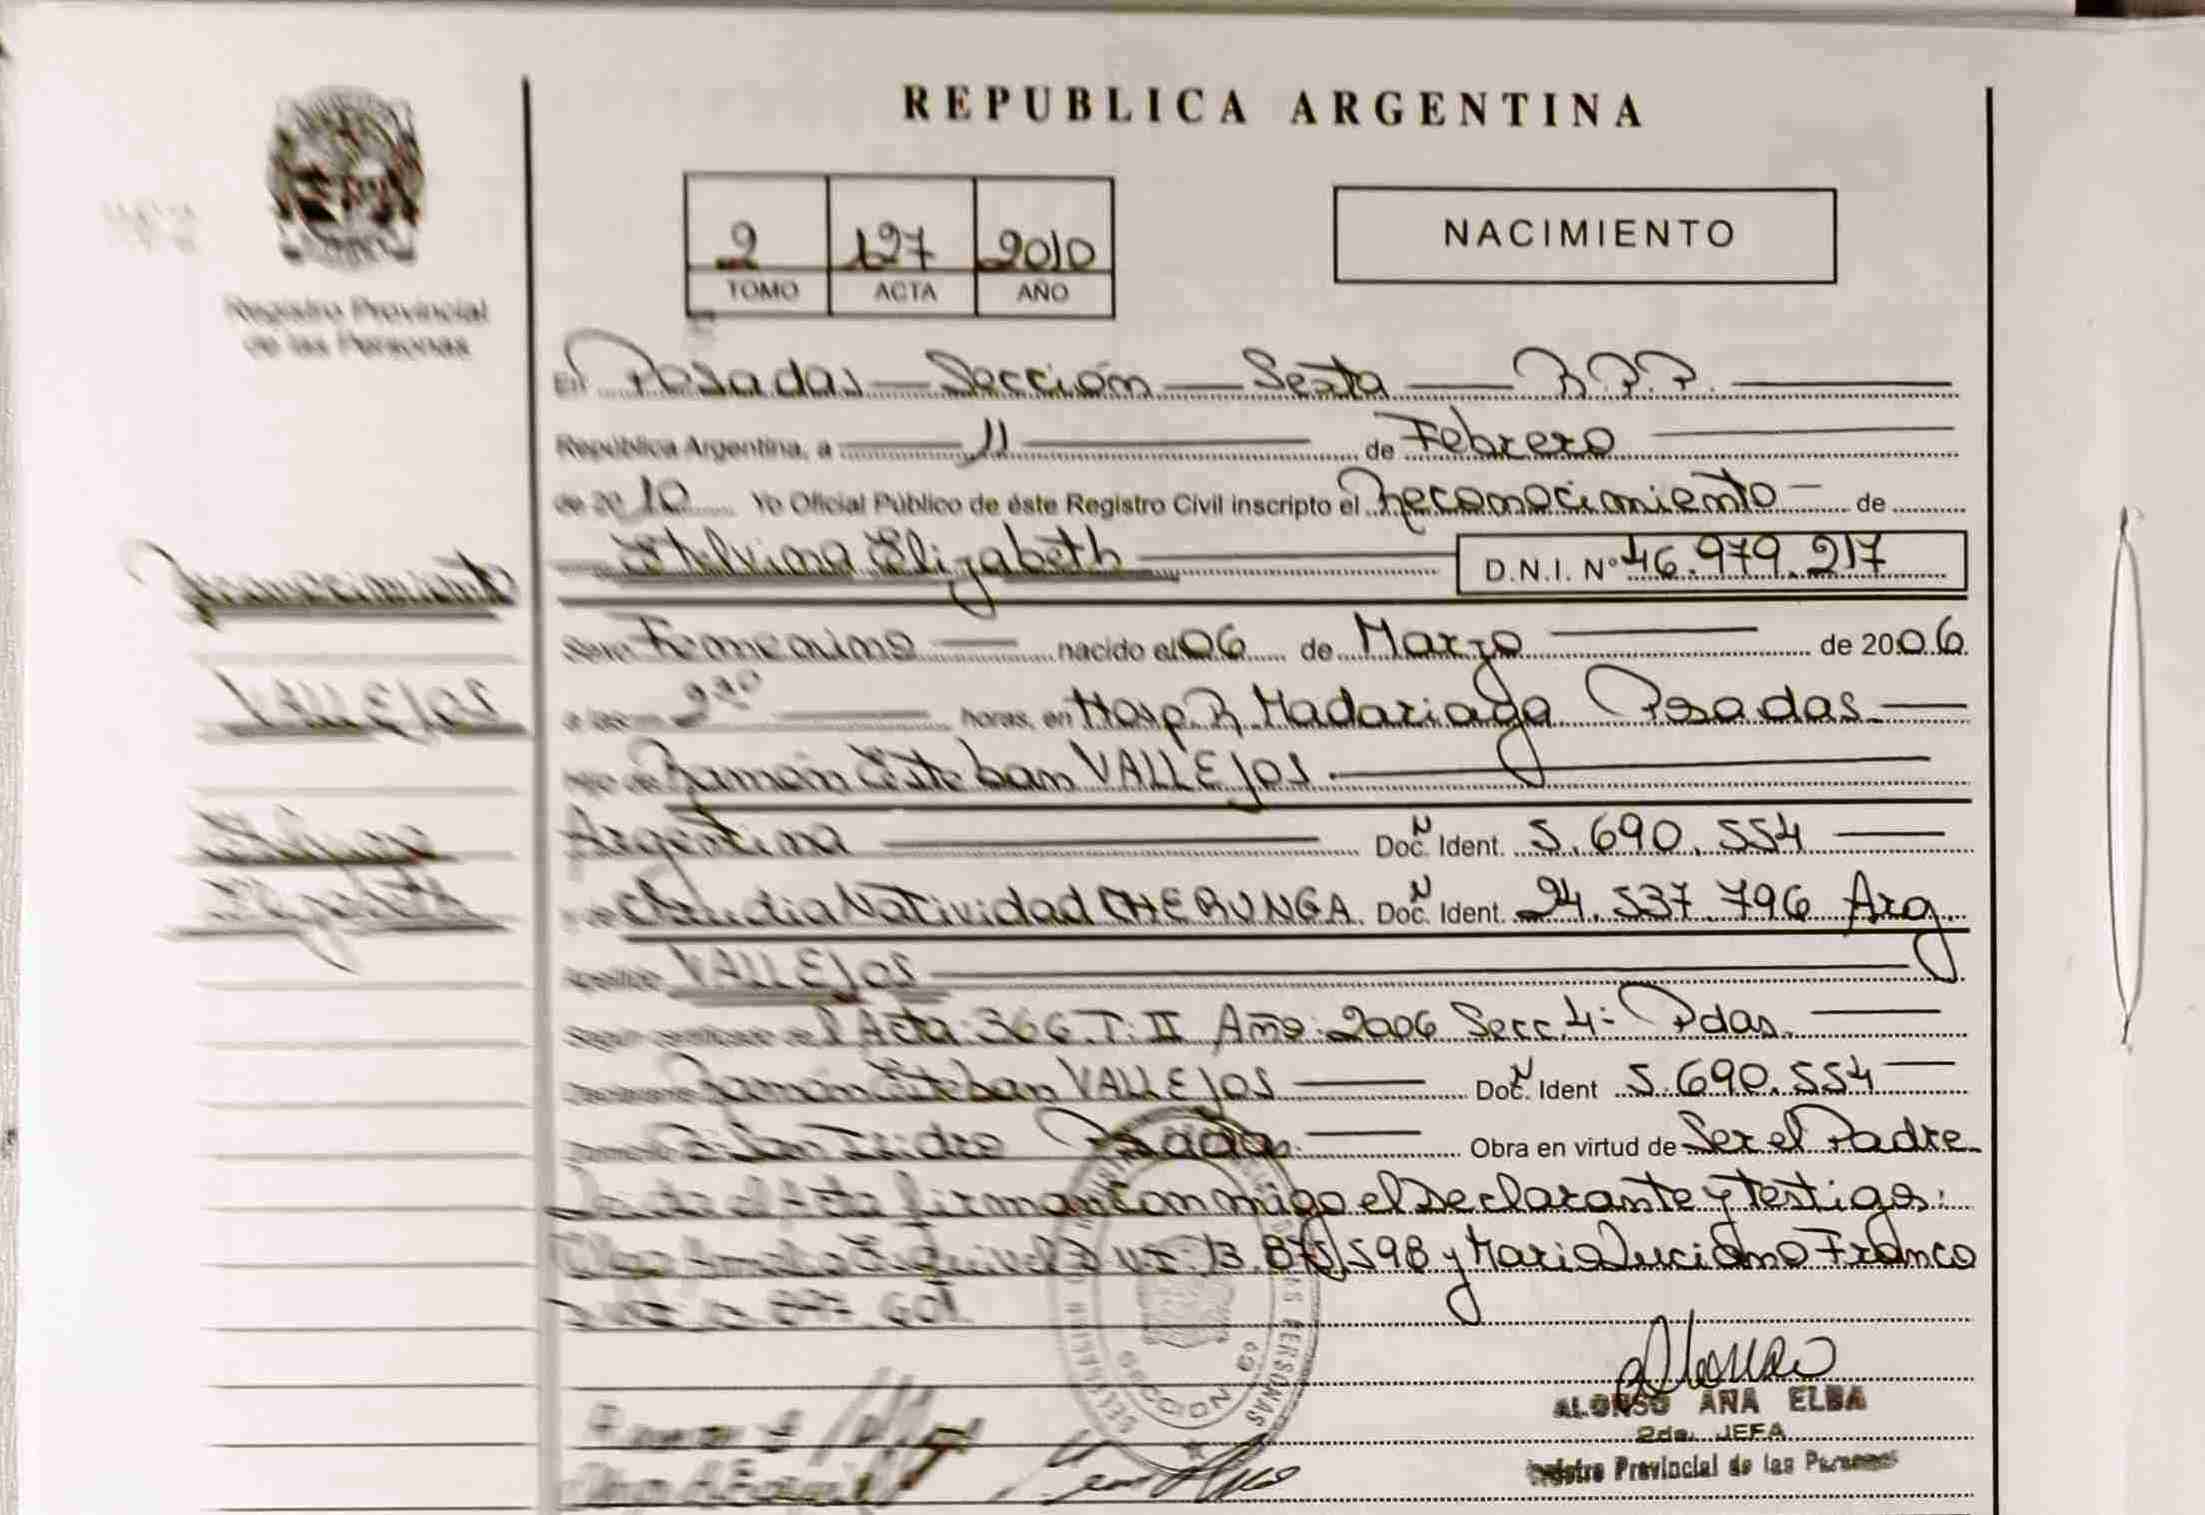 REPUBLICA ARGENTINA
2 127 2010
TOMO ACTA AÑO
NACIMIENTO
Registro Provincial
de las Personas
En Posadas Sección Sexta R.P.P.
República Argentina, a 11 de Febrero
de 2010 Yo Oficial Público de éste Registro Civil inscripto el Reconocimiento de
Elizabeth D.N.I. Nº 46.979.217
Reconocimiento
Sexo Femenino nacido el 06 de Marzo de 2006
VALLEJOS
a las horas, en Hosp. R. Madariaga Posadas
hijo de Ramón Esteban VALLEJOS
Argentina Doc. N Ident. 5.690.554
Elizabeth
y de Claudia Natividad CHERUNGA Doc. N Ident. 24.537.796 Arg
Apellido VALLEJOS
Según certificado de l Acta: 366 T: II Año: 2006 Secc. 4: Pdas.
Declarante Ramón Esteban VALLEJOS Doc. N Ident 5.690.554
Domicilio B: San Isidro Posadas Obra en virtud de Ser el Padre
el Acta firman Conmigo el Declarante y testigos:
Esquivel y Mario Luciano Franco
SECCION 6a
ALONSO ANA ELBA
2da. JEFA
Registro Provincial de las Personas